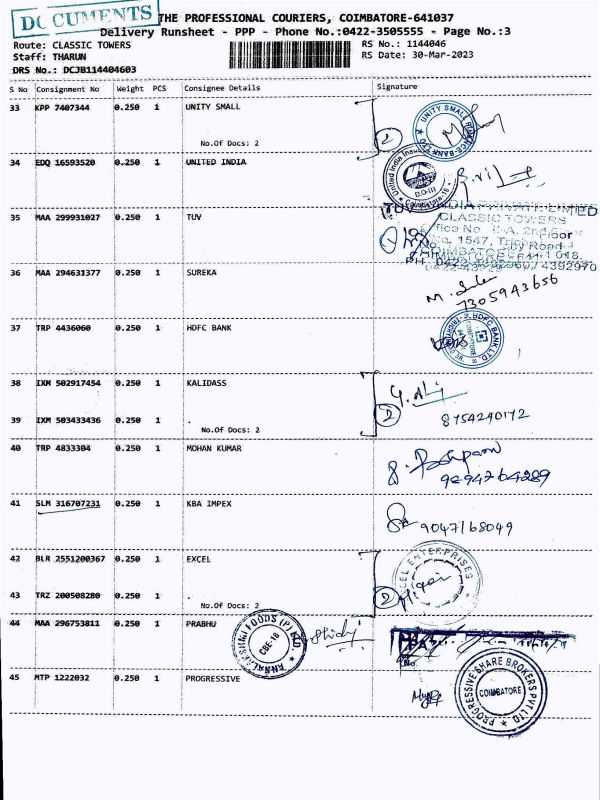 DOCUMENTS
THE PROFESSIONAL COURIERS, COIMBATORE-641037
Delivery Runsheet - PPP - Phone No.:0422-3505555 - Page No.:3
Route: CLASSIC TOWERS RS No.: 1144046
Staff: THARUN RS Date: 30-Mar-2023
DRS No.: DCJB114404603
S No Consignment No Weight PCS Consignee Details Signature
33 KPP 7407344 0.250 1 UNITY SMALL
UNITY SMALL FINANCE BANK LTD
No.Of Docs: 2 2
34 EDQ 16593520 0.250 1 UNITED INDIA
United India
D.O-III
Coimbatore-18
35 MAA 299931027 0.250 1 TUV
TUV INDIA PRIVATE LIMITED
CLASSIC TOWERS
Office No. 2nd Floor
No. 1547, Trichy Road
COIMBATORE 641 018.
36 MAA 294631377 0.250 1 SUREKA
7305943656
37 TRP 4436060 0.250 1 HDFC BANK
HDFC BANK LTD.
38 IXM 502917454 0.250 1 KALIDASS
39 IXM 503433436 0.250 1 .
No.Of Docs: 2 2 8754240172
40 TRP 4833304 0.250 1 MOHAN KUMAR
9894764289
41 SLM 316707231 0.250 1 KBA IMPEX
9047168049
42 BLR 2551200367 0.250 1 EXCEL
EXCEL ENTERPRISES
43 TRZ 200508280 0.250 1 .
No.Of Docs: 2 2
44 MAA 296753811 0.250 1 PRABHU
FOODS (P) LTD.
CBE-18
45 MTP 1222032 0.250 1 PROGRESSIVE
PROGRESSIVE SHARE BROKERS PVT LTD
COIMBATORE